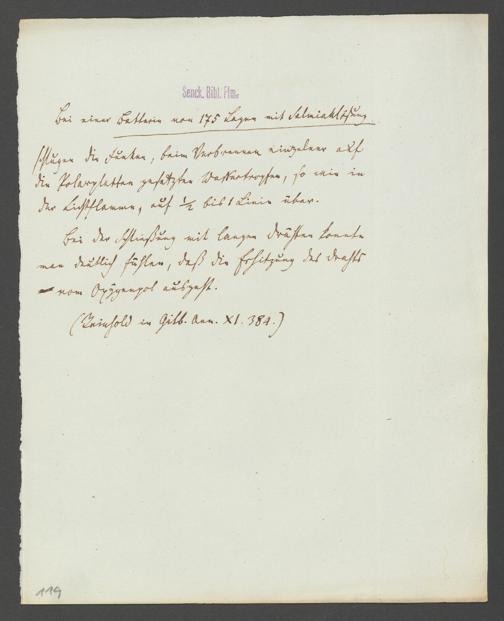 Senck. Bibl. Ffm.
Bei einer Batterie von 175 Lagen mit Salmiaklösung
schlugen die Funken, beim Verbrennen einzelner auf
die Polarplatten gesetzten Wassertropfen, so wie in
der Lichtflamme, auf ½ bis 1 Linie über.
Bei der Schließung mit langen Drähten konnte
man deutlich fühlen, daß die Erhitzung des Drahts
vom Oxygenpol ausgeht.
(Reinhold in Gilb. Ann. XI. 384.)
119